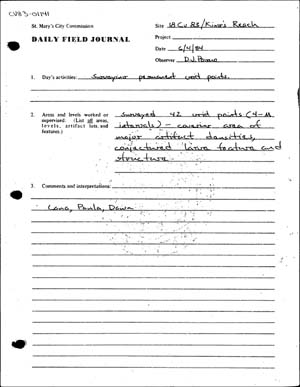 CV83-01141
St. Mary's City Commission
DAILY FIELD JOURNAL
Site 18 Cv 83/King's Reach
Project
Date 6/4/84
Observer D.J. Pogue
1. Day's activities: Surveying permanent grid points.
2. Areas and levels worked or
supervised. (List all areas,
levels, artifact lots, and
features.)
Surveyed 42 grid points (4-M
intervals) - covering area of
major artifact densities,
conjectured large feature and
structure.
3. Comments and interpretations:
Lana, Paula, Dawn